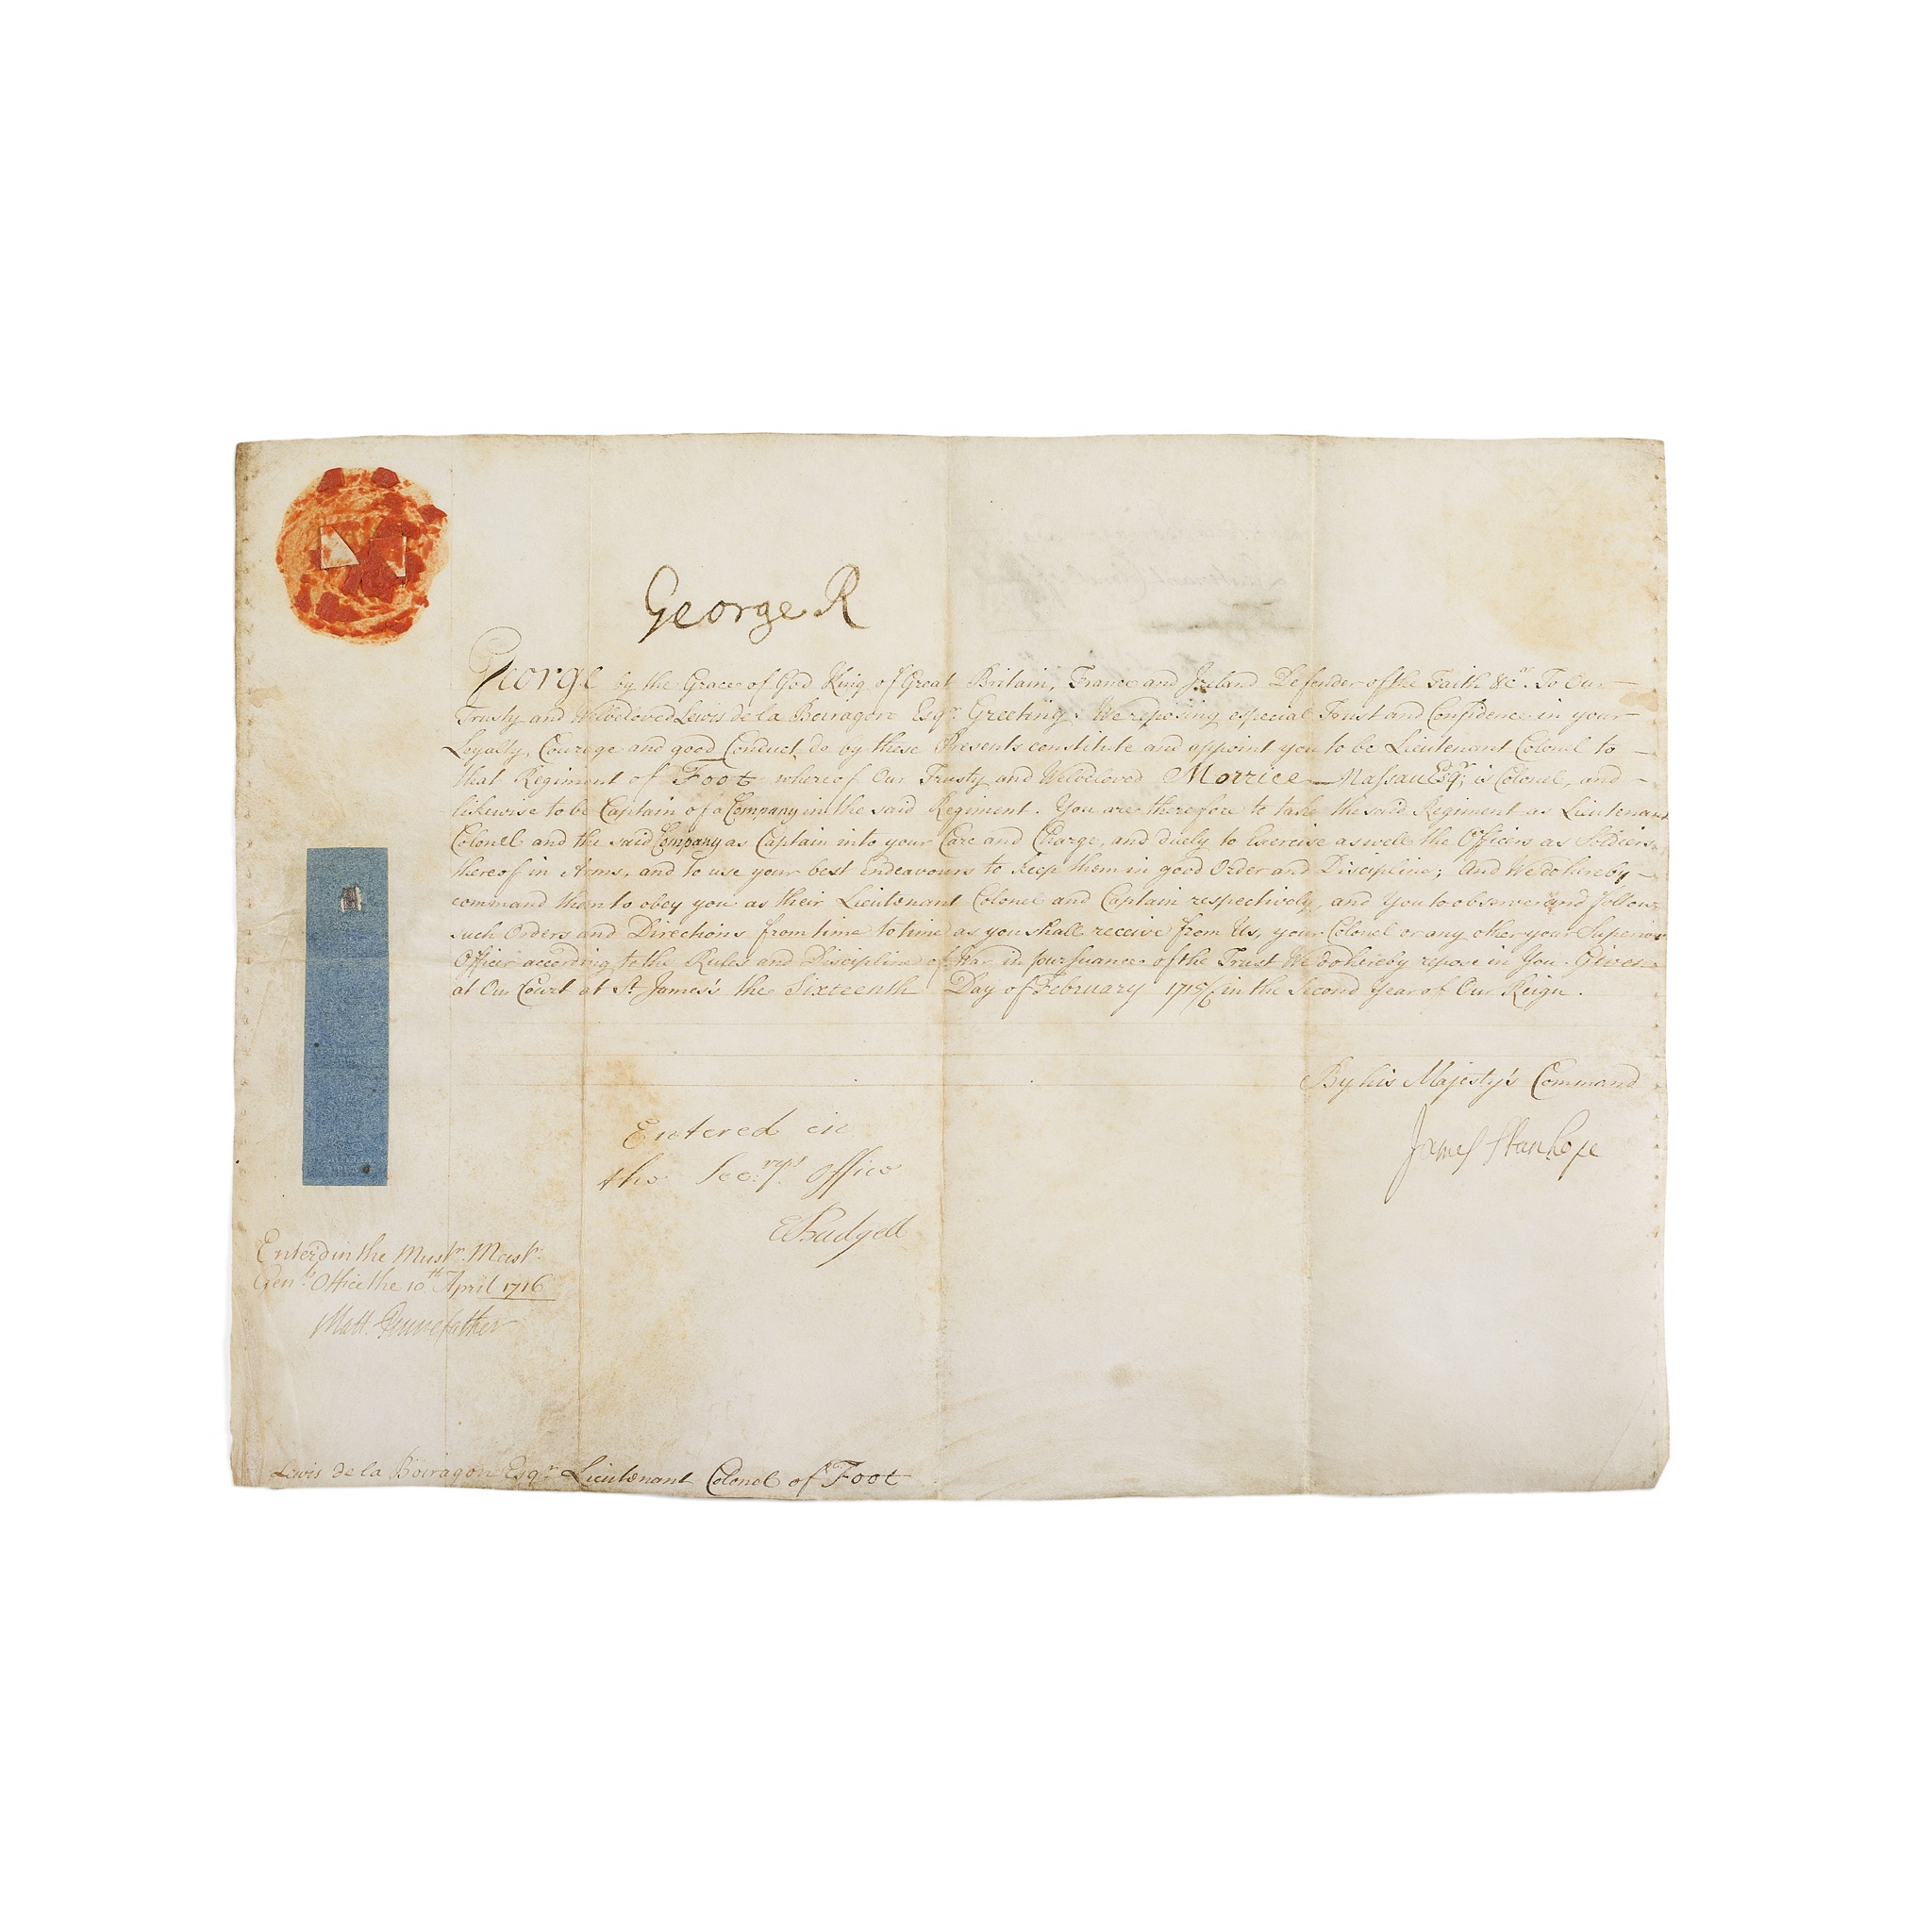 George R
George by the Grace of God King of Great Britain, France and Ireland Defender of the Faith &c.ᵃ To Our
Trusty and Welbeloved Lewis de la Boiragon Esqʳ. Greeting: We reposing especial Trust and Confidence in your
Loyalty, Courage and good Conduct, do by these Presents constitute and appoint you to be Lieutenant Colonel to
that Regiment of Foot whereof Our Trusty and Welbeloved Morrice Nassau Esqʳ; is Colonel, and
likewise to be Captain of a Company in the said Regiment. You are therefore to take the said Regiment as Lieutenant
Colonel and the said Company as Captain into your Care and Charge, and duely to Exercise as well the Officers as Soldiers
thereof in Arms, and to use your best Endeavours to keep them in good Order and Discipline; And We do hereby
command them to obey you as their Lieutenant Colonel and Captain respectively, and You to observe and follow
such Orders and Directions from time to time as you shall receive from Us, your Colonel or any other your Superior
Officer according to the Rules and Discipline of War in pursuance of the Trust We do hereby repose in You. Given
at Our Court at Sᵗ. James's the Sixteenth Day of February 1715/6 in the Second Year of Our Reign.
By his Majesty's Command
James Stanhope
Entered in
the Secʳʸˢ. Office
EBudgell
Enterd in the Mustʳ. Mastʳ.
Genˡˢ. Office the 10ᵗʰ April 1716
Matt. Pennefather
Lewis de la Boiragon Esqʳ Lieutenant Colonel of Foot